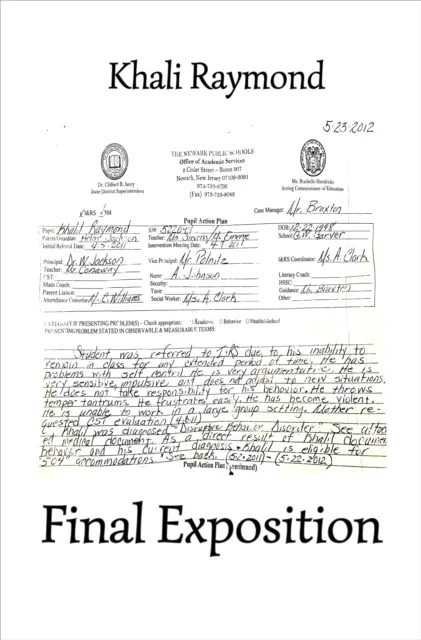 Khali Raymond
5-23-2012
THE NEWARK PUBLIC SCHOOLS
Office of Academic Services
2 Cedar Street – Room 907
Newark, New Jersey 07102-3091
973-733-8700
(Fax) 973-733-8942
Dr. Clifford B. Janey
State District Superintendent
Ms. Rochelle Hendricks
Acting Commissioner of Education
I&RS 504
Case Manager: Mr. Braxton
Pupil Action Plan
Pupil: Khalil Raymond
DOB: 12-22-1998
Parent/Guardian: Jackson
Teacher: Ms. Stevens/
School: G.W. Carver
Initial Referral Date:
Intervention Meeting Date:
Principal: Dr. W. Jackson
Vice Principal: Mr. Palnitz
I&RS Coordinator: Ms. A. Clark
Teacher: Mr. Conaway
Nurse: A. Johnson
Literacy Coach:
CST:
Security:
HSSC:
Math Coach:
Tutor:
Guidance: Mr. Braxton
Parent Liaison:
Social Worker: Ms. A. Clark
Other:
Attendance Counselor: C. Williams
CATEGORY OF PRESENTING PROBLEM(S) – Check appropriate: Academic Behavior Health
PRESENTING PROBLEM STATED IN OBSERVABLE & MEASURABLE TERMS:
Student was referred to I&RS due to his inability to
remain in class for any extended period of time. He has
problems with self control. He is very argumentative. He is
very sensitive, impulsive and does not adjust to new situations.
He does not take responsibility for his behavior. He throws
temper tantrums. He frustrates easily. He has become violent.
He is unable to work in a large group setting. Mother re-
quested CST evaluation
Khalil was diagnosed "Disruptive Behavior Disorder". See attach
ed medical document. As a direct result of Khalil documen
behavior and his current diagnosis, Khalil is eligible for
504 accommodations. See back. (5-2-2011)-(5-22-2012)
Pupil Action Plan (continued)
Final Exposition